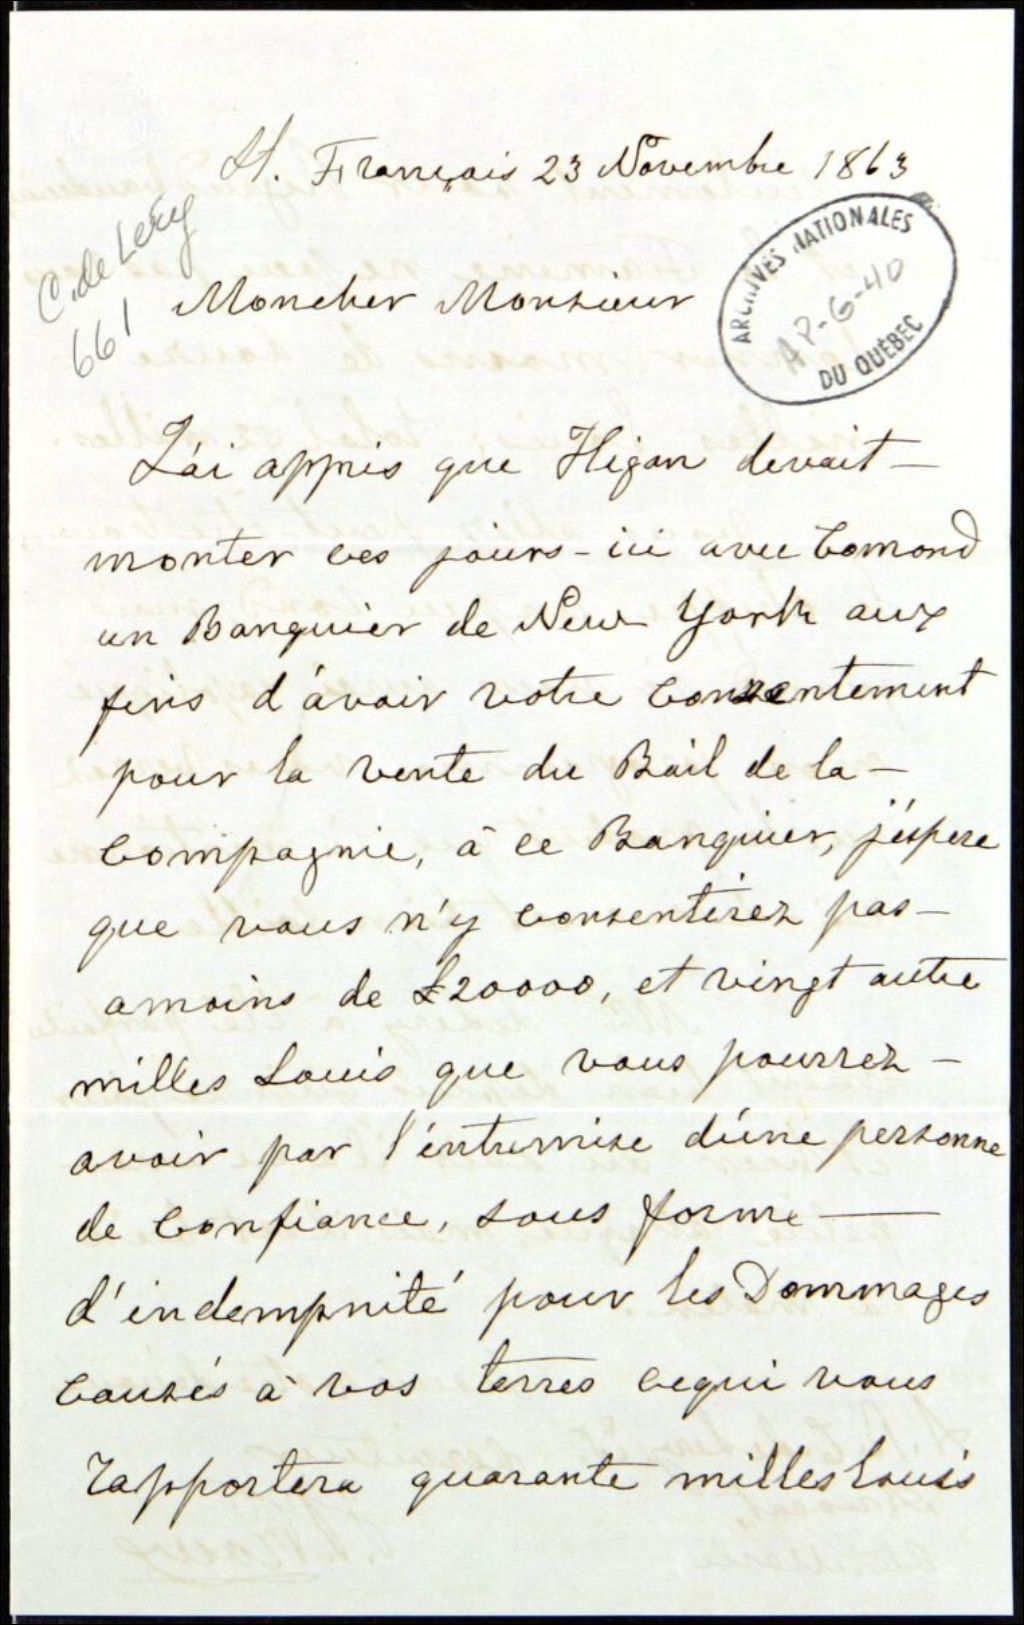 St. François 23 Novembre 1863
C. de Lery
661
ARCHIVES NATIONALES
AP-G-40
DU QUÉBEC
Moncher Monsieur
J'ai appris que Higan devait –
monter ces jours-ici avec Edmond
un Banquier de New York aux
fins d'avoir votre Consentement
pour la vente du Bail de la –
Compagnie, à ce Banquier, j'éspere
que vous n'y consentirez pas –
amoins de £20000, et vingt autre
milles Louis que vous pourrez –
avoir par l'éntremise d'úne personne
de Confiance, sous forme –
d'indempnité pour les Dommages
Causés à vos terres cequi vous
rapportera quarante milles Louis